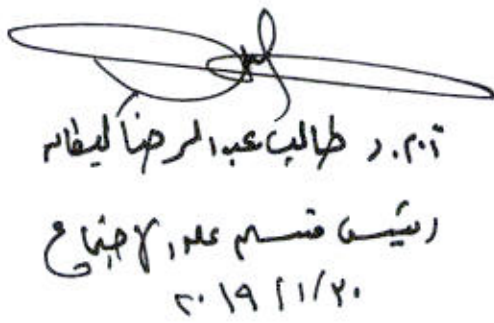 أ.م.د طالب عبد الرضا كيطان
رئيس قسم علم الاجتماع
٢٠١٩/١/٢٠